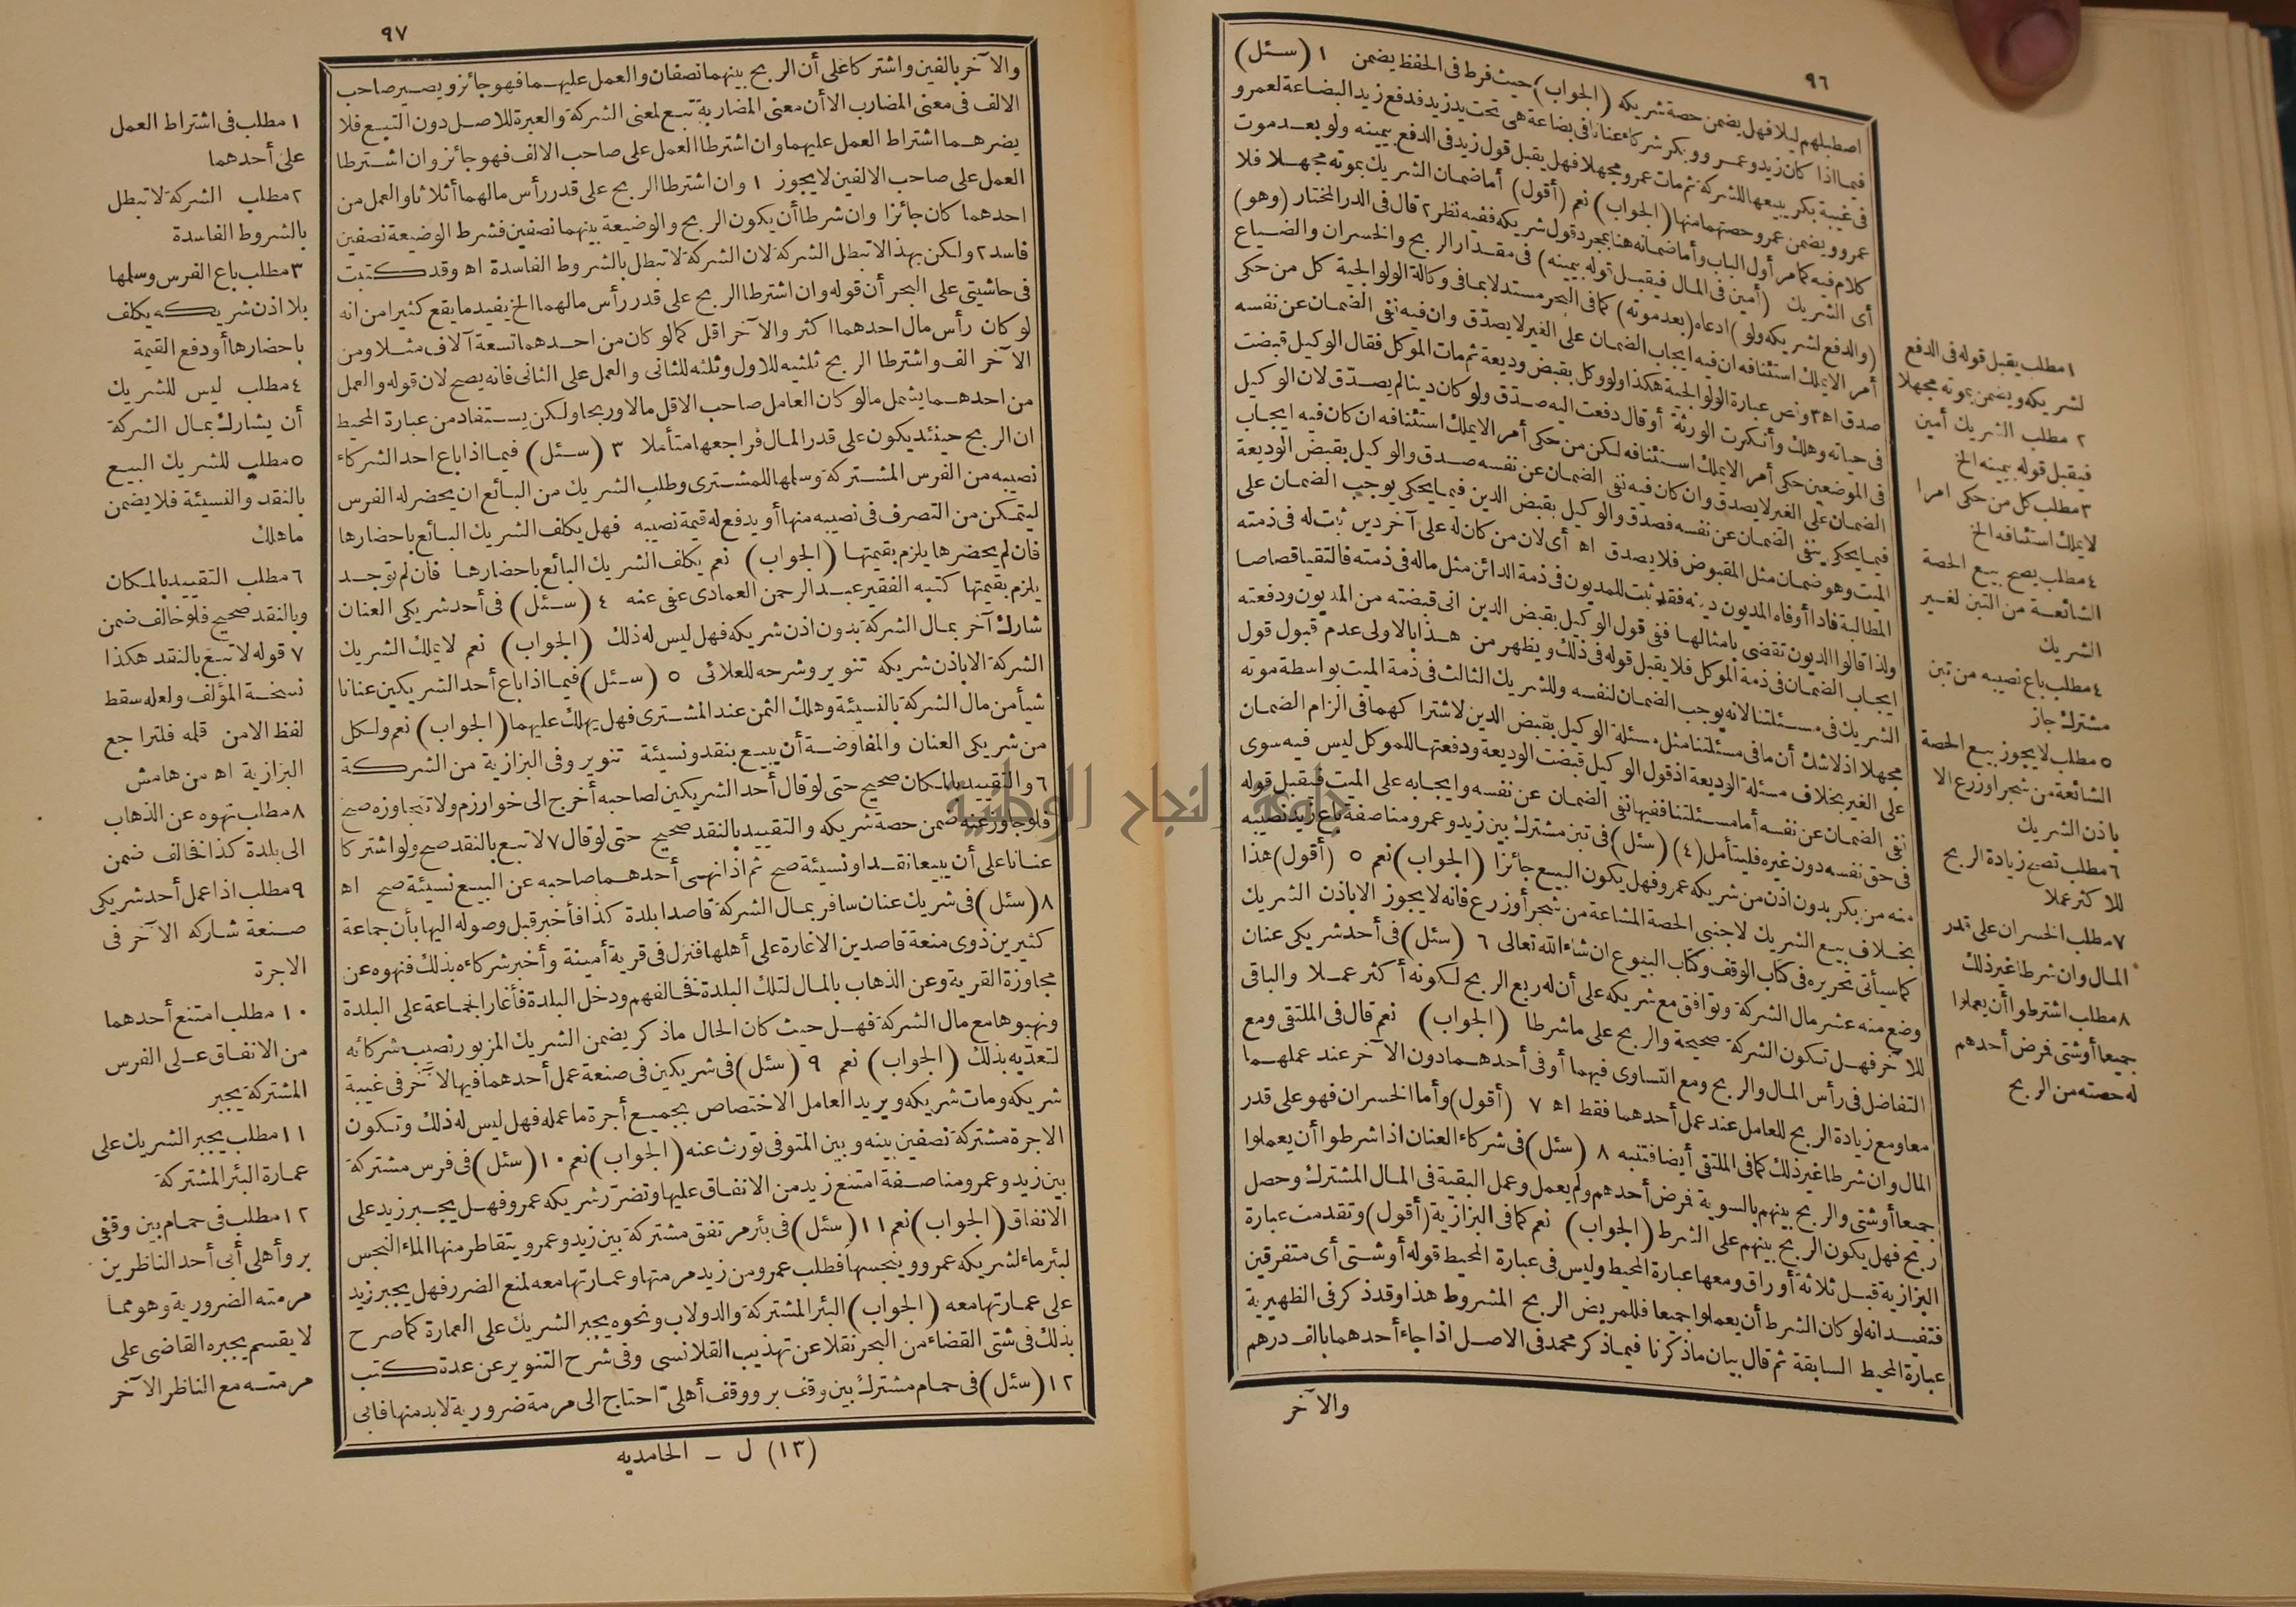 ٩٦
اصطبلهم ليلا فهل يضمن حصة شريكه (الجواب) حيث فرط فى الحفظ يضمن ١ (سئل)
فيما اذا كان زيد وعمرو وبكر شركاء عنانا فى بضاعة هى تحت يد زيد فدفع زيد البضاعة لعمرو
فى غيبة بكر يبيعها للشركة ثم مات عمرو مجهلا فهل يقبل قول زيد فى الدفع بيمينه ولو بعد موت
عمرو ويضمن عمرو حصتهما منها (الجواب) نعم (أقول) أما ضمان الشريك بموته مجهلا فلا
كلام فيه كما مر أول الباب وأما ضمانه هنا بمجرد قول شريكه ففيه نظر ٢ قال فى الدر المختار (وهو)
أى الشريك (أمين فى المال فيقبل قوله بيمينه) فى مقدار الربح والخسران والضياع
(والدفع لشريكه ولو) ادعاه (بعد موته) كما فى البحر مستدلا بما فى وكالة الولوالجية كل من حكى
أمر الايملك استئنافه ان فيه ايجاب الضمان على الغير لا يصدّق وان فيه نفى الضمان عن نفسه
صدق اه ٣ ونص عبارة الولوالجية هكذا ولو وكل بقبض وديعة ثم مات الموكل فقال الوكيل قبضت
فى حياته وهلك وأنكرت الورثة أو قال دفعت اليه صدّق ولو كان دينا لم يصدّق لان الوكيل
فى الموضعين حكى أمر الايملك استئنافه لكن من حكى أمر الايملك استئنافه ان كان فيه ايجاب
الضمان على الغير لا يصدق وان كان فيه نفى الضمان عن نفسه صدق والوكيل بقبض الوديعة
فيما يحكى ينفى الضمان عن نفسه فصدق والوكيل بقبض الدين فيما يحكى يوجب الضمان على
الميت وهو ضمان مثل المقبوض فلا يصدق اه أى لان من كان له على آخر دين ثابت له فى ذمته
المطالبة فاذا أوفاه المديون دينه فقد ثبت للمديون فى ذمة الدائن مثل ماله فى ذمته فالتقيا قصاصا
ولذا قالوا الديون تقضى بامثالها ففى قول الوكيل بقبض الدين انى قبضته من المديون ودفعته
ايجاب الضمان فى ذمة الموكل فلا يقبل قوله فى ذلك ويظهر من هذا بالاولى عدم قبول قول
الشريك فى مسئلتنا لانه يوجب الضمان لنفسه وللشريك الثالث فى ذمة الميت بواسطة موته
مجهلا اذ لا شك أن ما فى مسئلتنا مثل مسئلة الوكيل بقبض الدين لاشتراكهما فى الزام الضمان
على الغير بخلاف مسئلة الوديعة اذ قول الوكيل قبضت الوديعة ودفعتها للموكل ليس فيه سوى
نفى الضمان عن نفسه أما مسئلتنا ففيها نفى الضمان عن نفسه وايجابه على الميت فيقبل قوله
فى حق نفسه دون غيره فليتأمل (٤) (سئل) فى تبن مشترك بين زيد وعمرو مناصفة باع زيد نصيبه
منه من بكر بدون اذن من شريكه عمرو فهل يكون البيع جائزا (الجواب) نعم ٥ (أقول) هذا
بخلاف بيع الشريك لاجنبى الحصة المشاعة من شجر أو زرع فانه لا يجوز الا باذن الشريك
كما سيأتى تحريره فى كتاب الوقف وكتاب البيوع ان شاء الله تعالى ٦ (سئل) فى أحد شريكى عنان
وضع منه عشر مال الشركة وتوافق مع شريكه على أن له ربع الربح لكونه أكثر عملا والباقى
للآخر فهل تكون الشركة صحيحة والربح على ما شرطا (الجواب) نعم قال فى الملتقى ومع
التفاضل فى رأس المال والربح ومع التساوى فيهما أو فى أحدهما دون الآخر عند عملهما
معا ومع زيادة الربح للعامل عند عمل أحدهما فقط اه ٧ (أقول) وأما الخسران فهو على قدر
المال وان شرطا غير ذلك كما فى الملتقى أيضا فتنبه ٨ (سئل) فى شركاء العنان اذا شرطوا أن يعملوا
جميعا أو شتى والربح بينهم بالسوية فمرض أحدهم ولم يعمل وعمل البقية فى المال المشترك وحصل
ربح فهل يكون الربح بينهم على الشرط (الجواب) نعم كما فى البزازية (أقول) وتقدمت عبارة
البزازية قبل ثلاثة أوراق ومعها عبارة المحيط وليس فى عبارة المحيط قوله أو شتى أى متفرقين
فتفيد انه لو كان الشرط أن يعملوا جميعا فللمريض الربح المشروط هذا وقد ذكر فى الظهيرية
عبارة المحيط السابقة ثم قال بيان ما ذكرنا فيما ذكر محمد فى الاصل اذا جاء أحدهما بالف درهم
والآخر
١ مطلب يقبل قوله فى الدفع
لشريكه ويضمن بموته مجهلا
٢ مطلب الشريك أمين
فيقبل قوله بيمينه الخ
٣ مطلب كل من حكى امرا
لا يملك استئنافه الخ
٤ مطلب يصح بيع الحصة
الشائعة من التبن لغير
الشريك
٤ مطلب باع نصيبه من تبن
مشترك جاز
٥ مطلب لا يجوز بيع الحصة
الشائعة من شجر اوزرع الا
باذن الشريك
٦ مطلب تصح زيادة الربح
للاكثر عملا
٧ مطلب الخسران على قدر
المال وان شرطا غير ذلك
٨ مطلب اشترطوا أن يعملوا
جميعا أو شتى فمرض أحدهم
له حصته من الربح
٩٧
والآخر بالفين واشتركا على أن الربح بينهما نصفان والعمل عليهما فهو جائز ويصير صاحب
الالف فى معنى المضارب الا أن معنى المضاربة تبع لمعنى الشركة والعبرة للاصل دون التبع فلا
يضرهما اشتراط العمل عليهما وان اشترطا العمل على صاحب الالف فهو جائز وان اشترطا
العمل على صاحب الالفين لا يجوز ١ وان اشترطا الربح على قدر رأس مالهما أثلاثا والعمل من
احدهما كان جائزا وان شرطا أن يكون الربح والوضيعة بينهما نصفين فشرط الوضيعة نصفين
فاسد ٢ ولكن بهذا لا تبطل الشركة لان الشركة لا تبطل بالشروط الفاسدة اه وقد كتبت
فى حاشيتى على البحر أن قوله وان اشترطا الربح على قدر رأس مالهما الخ يفيد ما يقع كثيرا من انه
لو كان رأس مال احدهما اكثر والآخر اقل كما لو كان من احدهما تسعة آلاف مثلا ومن
الآخر الف واشترطا الربح ثلثيه للاول وثلثه للثانى والعمل على الثانى فانه يصح لان قوله والعمل
من احدهما يشمل ما لو كان العامل صاحب الاقل مالا وربحا ولكن يستفاد من عبارة المحيط
ان الربح حينئذ يكون على قدر المال فراجعها متأملا ٣ (سئل) فيما اذا باع احد الشركاء
نصيبه من الفرس المشتركة وسلمها للمشترى وطلب الشريك من البائع ان يحضر له الفرس
ليتمكن من التصرف فى نصيبه منها أو يدفع له قيمة نصيبه فهل يكلف الشريك البائع باحضارها
فان لم يحضرها يلزم بقيمتها (الجواب) نعم يكلف الشريك البائع باحضارها فان لم توجد
يلزم بقيمتها كتبه الفقير عبد الرحمن العمادى عفى عنه ٤ (سئل) فى أحد شريكى العنان
شارك آخر بمال الشركة بدون اذن شريكه فهل ليس له ذلك (الجواب) نعم لا يملك الشريك
الشركة الا باذن شريكه تنوير وشرحه للعلائى ٥ (سئل) فيما اذا باع أحد الشريكين عنانا
شيأ من مال الشركة بالنسيئة وهلك الثمن عند المشترى فهل يهلك عليهما (الجواب) نعم ولكل
من شريكى العنان والمفاوضة أن يبيع بنقد ونسيئة تنوير وفى البزازية من الشركة
٦ والتقييد بالمكان صحيح حتى لو قال أحد الشريكين لصاحبه أخرج الى خوارزم ولا تتجاوزه صح
فلو جاوز عنه ضمن حصة شريكه والتقييد بالنقد صحيح حتى لو قال ٧ لا تبع بالنقد صح ولو اشتركا
عنانا على أن يبيعا نقدا ونسيئة صح ثم اذا نهى أحدهما صاحبه عن البيع نسيئة صح اه
٨ (سئل) فى شريك عنان سافر بمال الشركة قاصدا بلدة كذا فأخبر قبل وصوله اليها بأن جماعة
كثيرين ذوى منعة قاصدين الاغارة على أهلها فنزل فى قرية أمينة وأخبر شركاءه بذلك فنهوه عن
مجاوزة القرية وعن الذهاب بالمال لتلك البلدة فخالفهم ودخل البلدة فأغار الجماعة على البلدة
ونهبوها مع مال الشركة فهل حيث كان الحال ما ذكر يضمن الشريك المزبور نصيب شركائه
لتعدّيه بذلك (الجواب) نعم ٩ (سئل) فى شريكين فى صنعة عمل أحدهما فيها الآخر فى غيبة
شريكه ومات شريكه ويريد العامل الاختصاص بجميع أجرة ما عمله فهل ليس له ذلك وتكون
الاجرة مشتركة نصفين بينه وبين المتوفى تورث عنه (الجواب) نعم ١٠ (سئل) فى فرس مشتركة
بين زيد وعمرو مناصفة امتنع زيد من الانفاق عليها وتضرّر شريكه عمرو فهل يجبر زيد على
الانفاق (الجواب) نعم ١١ (سئل) فى بئر مرتفق مشتركة بين زيد وعمرو يتقاطر منها الماء النجس
لبئر ماء لشريكه عمرو وينجسها فطلب عمرو من زيد مرمتها وعمارتها معه لمنع الضرر فهل يجبر زيد
على عمارتها معه (الجواب) البئر المشتركة والدولاب ونحوه يجبر الشريك على العمارة كما صرح
بذلك فى شتى القضاء من البحر نقلا عن تهذيب القلانسى وفى شرح التنوير عن عدة كتب
١٢ (سئل) فى حمام مشترك بين وقف بر ووقف أهلىّ احتاج الى مرمة ضرورية لابد منها فابى
(١٣) ل - الحامديه
١ مطلب فى اشتراط العمل
على أحدهما
٢ مطلب الشركة لا تبطل
بالشروط الفاسدة
٣ مطلب باع الفرس وسلمها
بلا اذن شريكه يكلف
باحضارها أو دفع القيمة
٤ مطلب ليس للشريك
أن يشارك بمال الشركة
٥ مطلب للشريك البيع
بالنقد والنسيئة فلا يضمن
ما هلك
٦ مطلب التقييد بالمكان
وبالنقد صحيح فلو خالف ضمن
٧ قوله لا تبع بالنقد هكذا
نسخة المؤلف ولعله سقط
لفظ الا من قلمه فلتراجع
البزازية اه من هامش
٨ مطلب نهوه عن الذهاب
الى بلدة كذا فخالف ضمن
٩ مطلب اذا عمل أحد شريكى
صنعة شاركه الآخر فى
الاجرة
١٠ مطلب امتنع أحدهما
من الانفاق على الفرس
المشتركة يجبر
١١ مطلب يجبر الشريك على
عمارة البئر المشتركة
١٢ مطلب فى حمام بين وقفى
بر وأهلى أبى أحد الناظرين
مرمته الضرورية وهو مما
لا يقسم يجبره القاضى على
مرمته مع الناظر الآخر
جامعة النجاح الوطنية